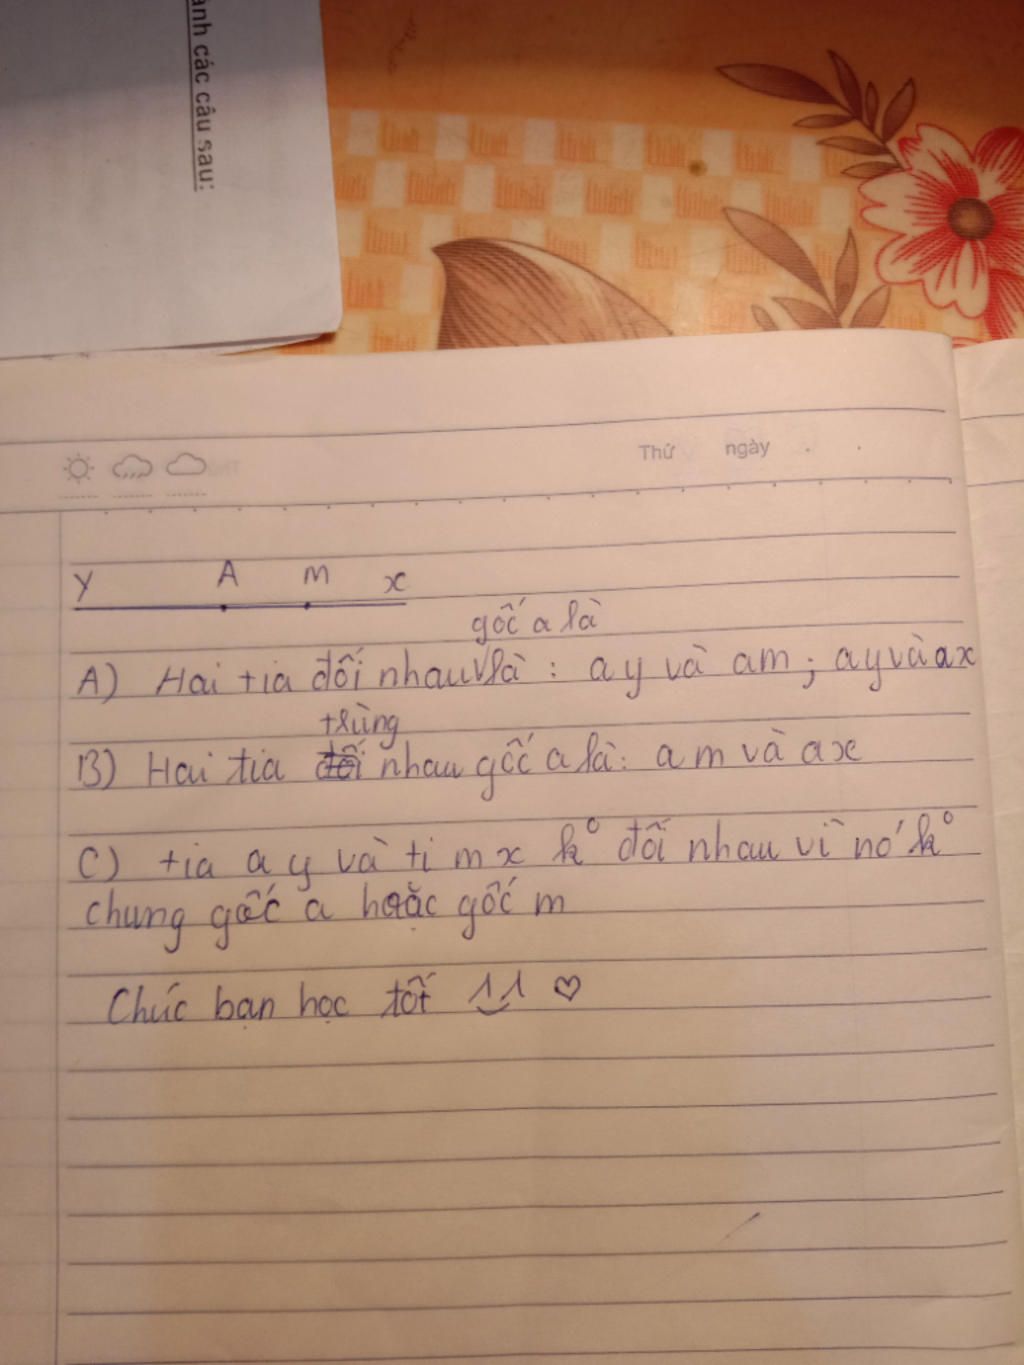 ành các câu sau:
Thứ ngày
y A m x
gốc a là
A) Hai tia đối nhau là : ay và am ; ay và ax
trùng
B) Hai tia đối nhau gốc a là : am và ax
C) tia ay và ti mx k° đối nhau vì nó k°
chung gốc a hoặc gốc m
Chúc bạn học tốt ^^ ♡